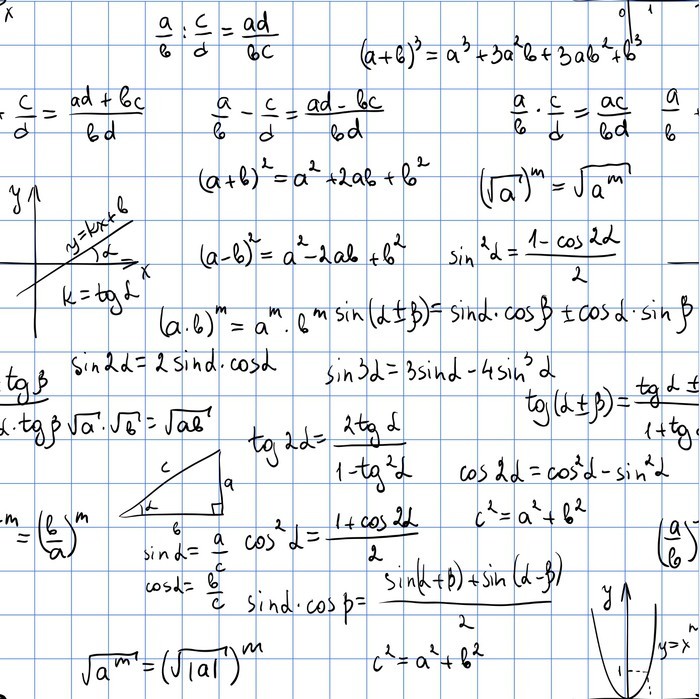 x
a/b : c/d = ad/bc
0 1
(a+b)³ = a³ + 3a²b + 3ab² + b³
+ c/d = (ad + bc)/bd
a/b - c/d = (ad - bc)/bd
a/b · c/d = ac/bd
a/b +
(a+b)² = a² + 2ab + b²
(√a)ᵐ = √aᵐ
y
y=kx+b
α
x
k = tg α
(a-b)² = a² - 2ab + b²
sin²α = (1 - cos 2α)/2
(a·b)ᵐ = aᵐ · bᵐ
sin(α±β) = sinα · cosβ ± cosα · sinβ
sin2α = 2 sinα · cosα
sin3α = 3sinα - 4sin³α
tgβ
α · tgβ
√a · √b = √ab
tg 2α = 2tg α/(1 - tg²α)
tg(α±β) = tg α ±
1+tg
cos 2α = cos²α - sin²α
c
a
α
b
c² = a² + b²
m = (b/a)ᵐ
sinα = a/c
cosα = b/c
cos²α = (1 + cos 2α)/2
(a/b)
sinα · cosβ = (sin(α+β) + sin(α-β))/2
√aᵐ = (√|a|)ᵐ
c² = a² + b²
y
y=xⁿ
1